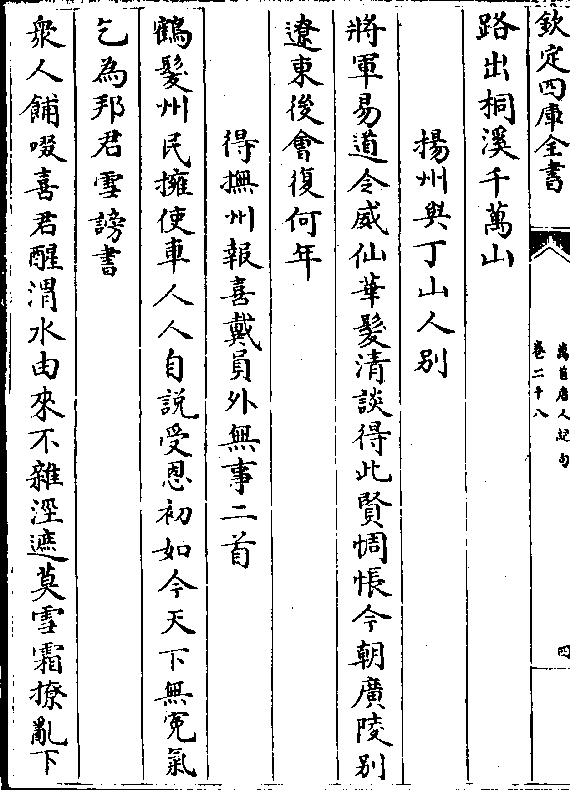 欽定四庫全書
萬首唐人絶句
卷二十八
四
路出桐溪千萬山
揚州與丁山人别
將軍易道令威仙華髮清談得此賢惆悵今朝廣陵别
遼東後會復何年
得撫州報喜戴員外無事二首
鶴髮州民擁使車人人自説受恩初如今天下無寃氣
乞為邦君雪謗書
衆人餔啜喜君醒渭水由來不雜涇遮莫雪霜撩亂下